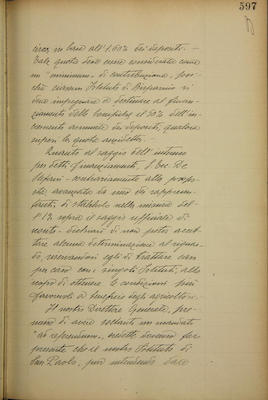 597
circa in base all'1,60% dei depositi. -
Tale quota deve essere considerata come
un "minimum" di contribuzione, poi-
chè ciascun Istituto di Risparmio si
deve impegnare a destinare al finan-
ziamento delle bonifiche il 50% dell'in-
cremento annuale dei depositi, qualora
superi la quota suddetta. -
Quanto al saggio dell'interesse
per detti finanziamenti, l'On. De
Stefani - contrariamente alla propo-
sta avanzata da uno dei rappresen-
tanti, di stabilirlo nella misura del-
l'1% sopra il saggio ufficiale di
sconto - dichiarò di non poter accet-
tare alcuna determinazione al riguar-
do, riservandosi egli di trattare caso
per caso con i singoli Istituti, allo
scopo di ottenere le condizioni più
favorevoli a beneficio degli agricoltori. -
Il nostro Direttore Generale, pre-
messo di avere soltanto un mandato
"ad referendum", credette doveroso far
presente che il nostro Istituto di
San Paolo, pur intendendo dare